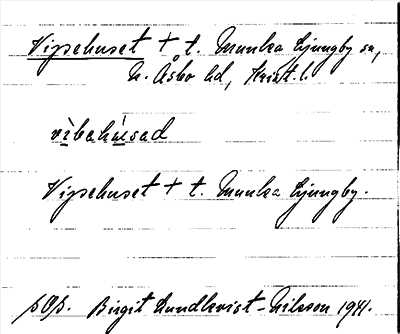 Vipsehuset + t. Munka Ljungby sn,
N. Åsbo hd, Krist. l.
vìbahúsad
Vipsehuset + t. Munka Ljungby.
pOp. Birgit Lundkvist-Nilsson 1941.